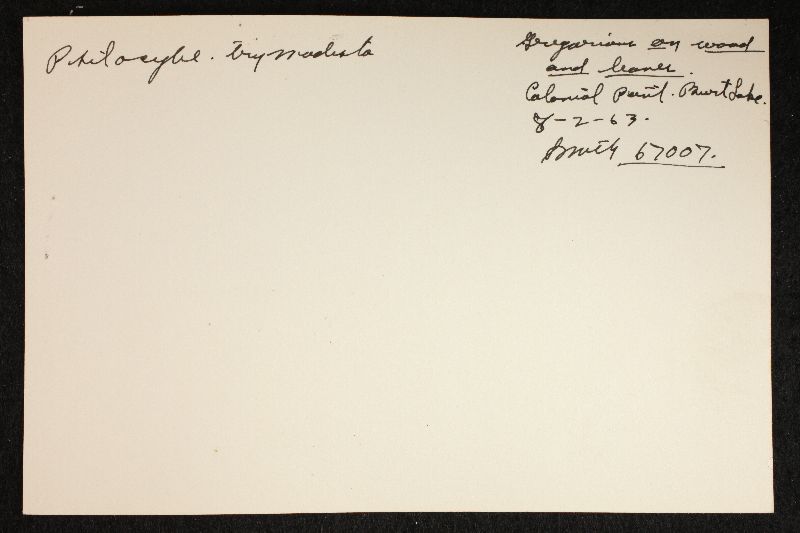 Psilocybe.
Gregarious on wood
and leaves.
Colonial Point. Burt Lake.
8-2-63.
Smith 67007.